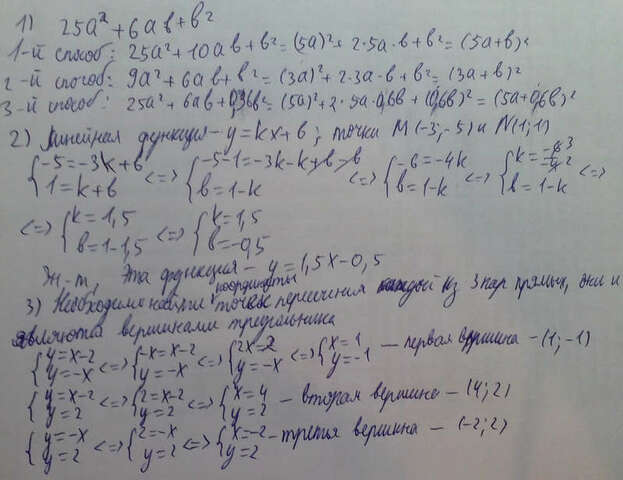 1) 25a²+6ab+b²
1-й способ: 25a²+10ab+b²=(5a)²+2·5a·b+b²=(5a+b)²
2-й способ: 9a²+6ab+b²=(3a)²+2·3a·b+b²=(3a+b)²
3-й способ: 25a²+6ab+0,36b²=(5a)²+2·5a·0,6b+(0,6b)²=(5a+0,6b)²
2) Линейная функция - y=kx+b; точки M(-3;-5) и N(1;1)
{-5=-3k+b <=> {-5-1=-3k-k+b-b <=> {-6=-4k <=> {k=-6/-4 3 2 <=>
{1=k+b {b=1-k {b=1-k {b=1-k
<=> {k=1,5 <=> {k=1,5
{b=1-1,5 {b=-0,5
Эта функция - y=1,5x-0,5
3) Необходимо найти координаты точек пересечения каждой из 3 пар прямых, они и
являются вершинами треугольника
{y=x-2 <=> {-x=x-2 <=> {2x=2 <=> {x=1 - первая вершина - (1;-1)
{y=-x {y=-x {y=-x {y=-1
{y=x-2 <=> {2=x-2 <=> {x=4 - вторая вершина - (4;2)
{y=2 {y=2 {y=2
{y=-x <=> {2=-x <=> {x=-2 - третья вершина - (-2;2)
{y=2 {y=2 {y=2